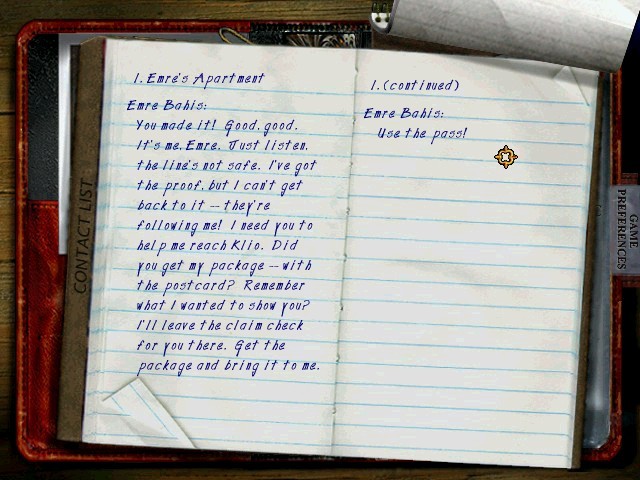 1. Emre's Apartment
Emre Bahis:
You made it! Good, good.
It's me, Emre. Just listen,
the line's not safe. I've got
the proof, but I can't get
back to it -- they're
following me! I need you to
help me reach Klio. Did
you get my package -- with
the postcard? Remember
what I wanted to show you?
I'll leave the claim check
for you there. Get the
package and bring it to me.
1. (continued)
Emre Bahis:
Use the pass!
CONTACT LIST
GAME
PREFERENCES